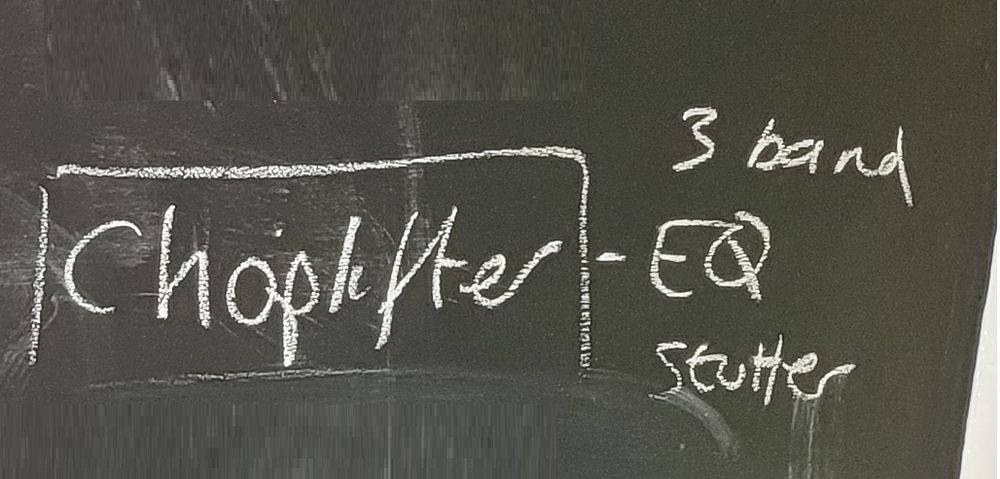 3 band
Choplifter - EQ
stutter